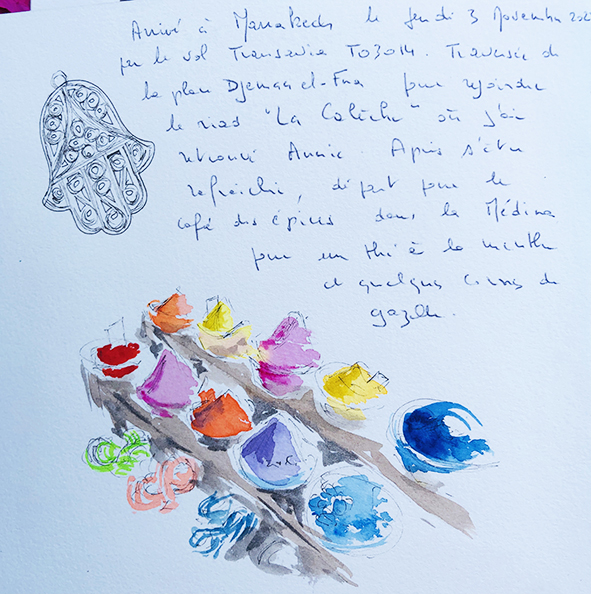 Arrivé à Marrakech le jeudi 3 Novembre 202
par le vol Transavia TO3014. Traversée de
la place Djemaa el-Fna pour rejoindre
le riad "La Calèche" où j'ai
retrouvé Annie. Après s'être
rafraichie, départ pour le
café des épices dans la Médina
pour un thé à la menthe
et quelques cornes de
gazelle.